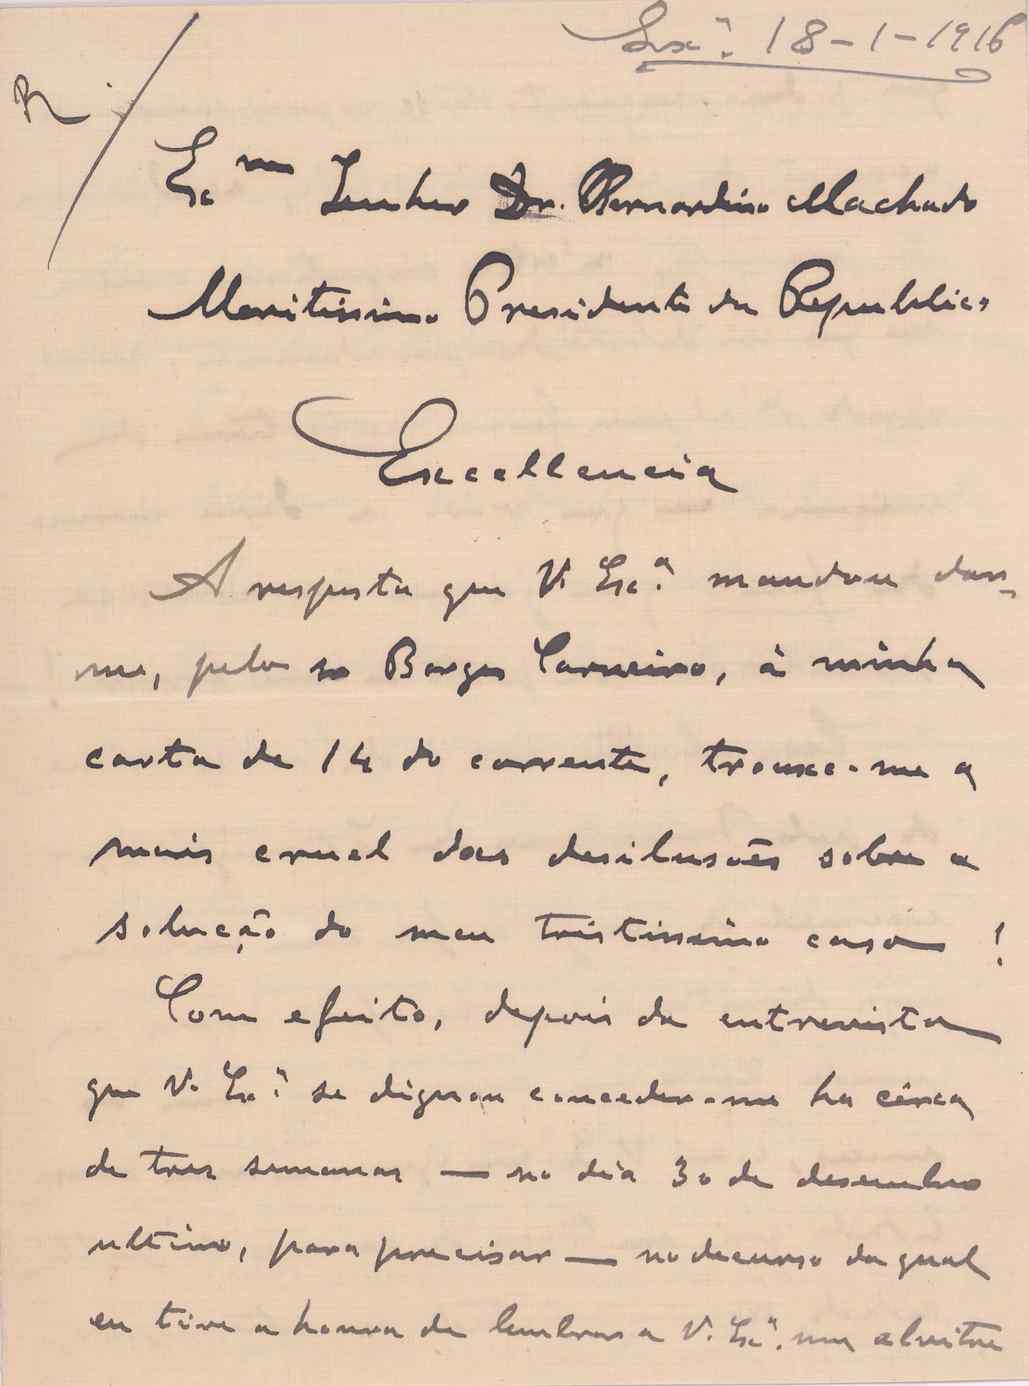 Lxª. 18-1-1916
R
Ex.mo Senhor Dr. Bernardino Machado
Meritissimo Presidente da Republica
Excellencia
A resposta que V. Exª. mandou dar-
me, pelo sr Borges Carneiro, á minha
carta de 14 do corrente, trouxe-me a
mais cruel das desilusões sobre a
solução do meu tristissimo caso!
Com efeito, depois da entrevista
que V. Exª. se dignou conceder-me ha cêrca
de tres semanas — no dia 30 de desembro
ultimo, para precisar — no decurso da qual
eu tive a honra de lembrar a V. Exª. um alvitre